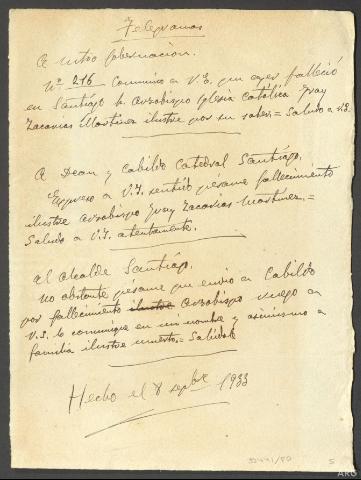 Telegramas
A mtro Gobernacion.
Nº 216 Comunico a V.E. que ayer falleció
en Santiago Arzobispo Iglesia Católica Fray
Zacarias Martinez ilustre por su saber = Saludo a V.E.
A Dean y Cabildo Catedral Santiago.
Expreso a V.I. sentido pésame fallecimiento
ilustre Arzobispo Fray Zacarias Martinez. =
Saludo a V.I. atentamente.
Al Alcalde Santiago.
No obstante pésame que envio a Cabildo
por fallecimiento ilustre Arzobispo ruego a
V.S. lo comunique en mi nombre y asimismo a
familia ilustre muerto. = Saludole
Hecho el 8 sepbre 1933
5
ARG